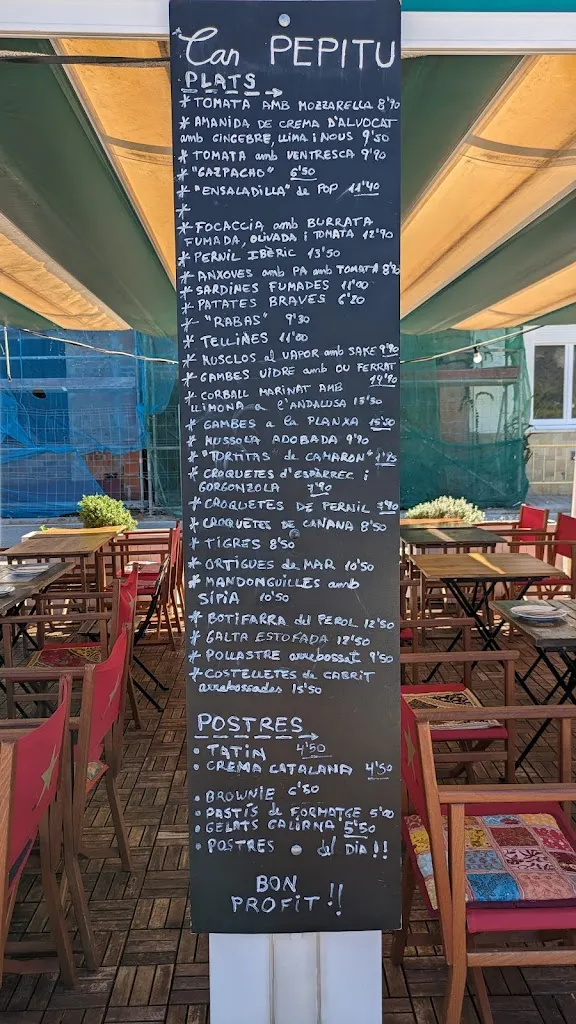 Can PEPITU
PLATS
* TOMATA AMB MOZZARELLA 8'90
* AMANIDA DE CREMA D'ALVOCAT
amb GINGEBRE, LLIMA i NOUS 9'50
* TOMATA amb VENTRESCA 9'90
* "GAZPACHO" 6'50
* "ENSALADILLA" de POP 11'40
*
* FOCACCIA amb BURRATA
FUMADA, OLIVADA i TOMATA 12'90
* PERNIL IBÈRIC 13'50
* ANXOVES amb PA amb TOMATA 8'90
* SARDINES FUMADES 11'00
* PATATES BRAVES 6'20
* "RABAS" 9'30
* TELLINES 11'00
* MUSCLOS al VAPOR amb SAKE 9'90
* GAMBES VIDRE amb OU FERRAT
14'90
* CORBALL MARINAT AMB
LLIMONA a l'ANDALUSA 13'50
* GAMBES a la PLANXA 15'50
* MUSSOLA ADOBADA 9'90
* "TORTITAS" de CAMARON"
* CROQUETES d'ESPÀRREC i
GORGONZOLA 7'90
* CROQUETES DE PERNIL 7'90
* CROQUETES DE CANANA 8'50
* TIGRES 8'50
* ORTIGUES de MAR 10'50
* MANDONGUILLES amb
SÍPIA 10'50
* BOTIFARRA del PEROL 12'50
* GALTA ESTOFADA 12'50
* POLLASTRE arrebossat 9'50
* COSTELLETES de CABRIT
arrebossades 15'50
POSTRES
• TATIN 4'50
• CREMA CATALANA 4'50
• BROWNIE 6'50
• PASTÍS de FORMATGE 5'00
• GELATS CALIRNA 5'50
• POSTRES del DIA!!
BON
PROFIT!!